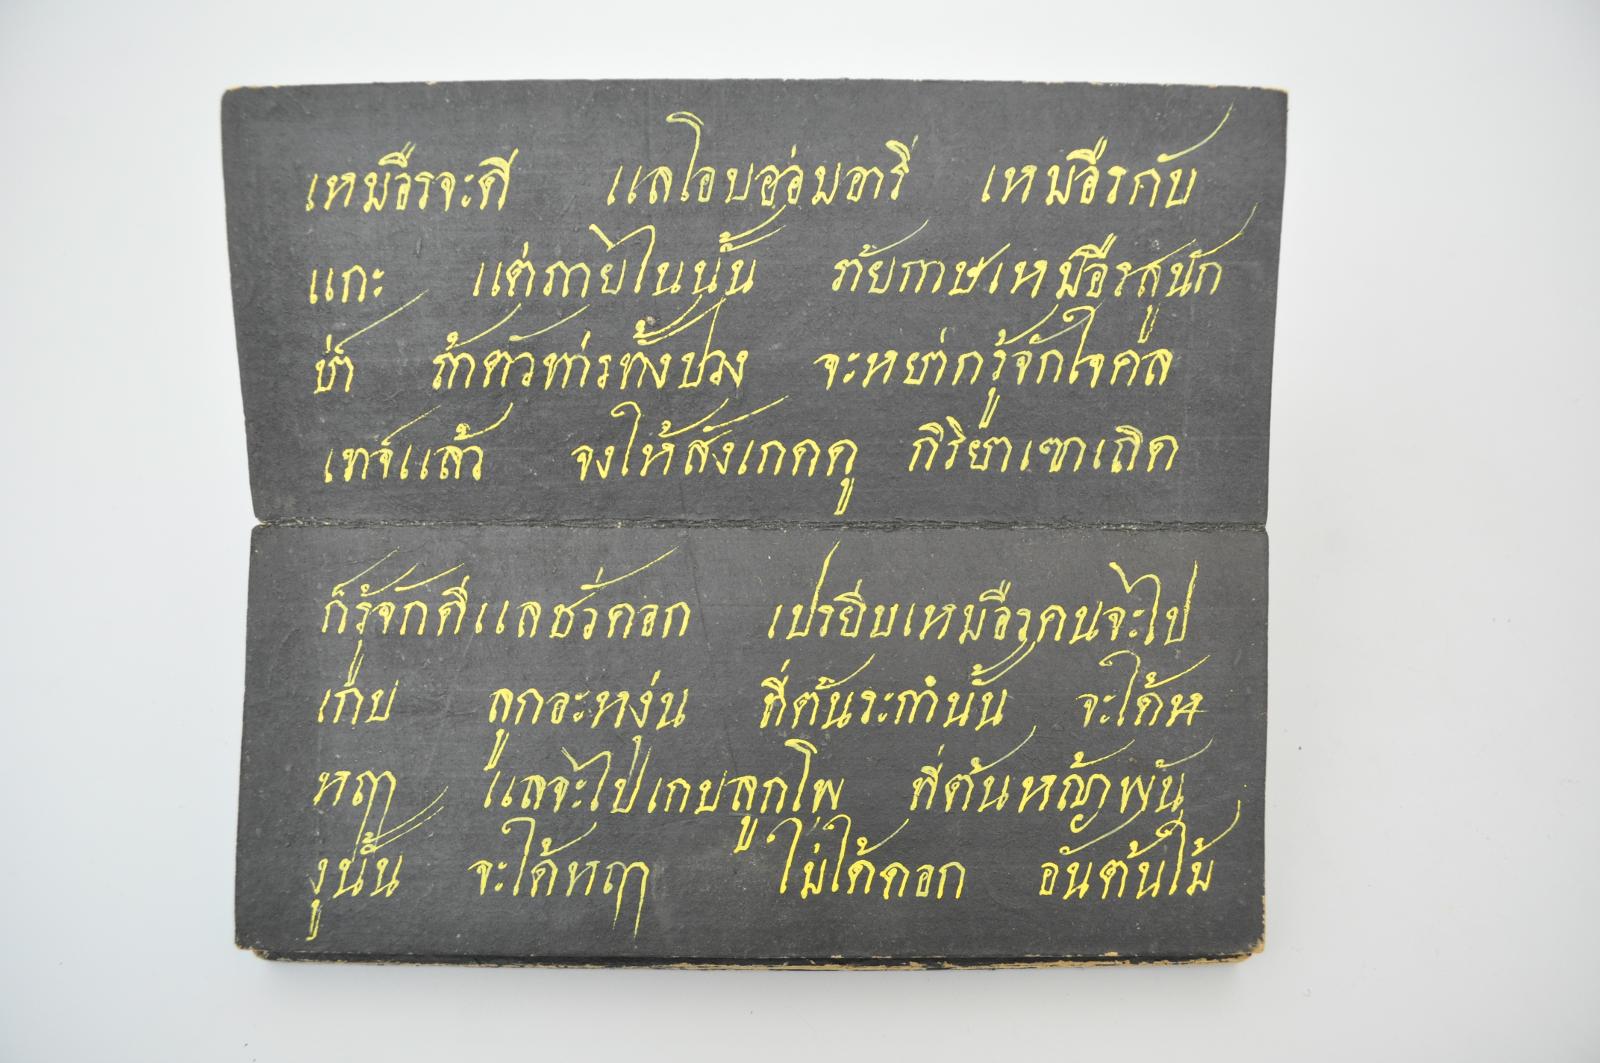 เหมือรจะดี แลโอบอ่อมอารี เหมือรกับ
แกะ แต่ภายไนนั้น ภัยกาษเหมือีรสูนัก
ป่า ถ้าตัวท่ารทั้งปวง จะหย่ากรู้จักใจคล
เทจ์แล้ว จงให้สังเกดดู กิริย่าเฃาเถิด
ก็รู้จักดีแลชั่วดอก เปรยิบเหมือีรคนจะไป
เก็บ ลูกอะหงุ่น ที่ต้นระกำนั้น จะได้ห
หฤา แลจะไปเกบลูกโพ ที่ต้นหญ้าพัน
งูนั้น จะได้หฤา ไม่ได้ดอก อันต้นไม้